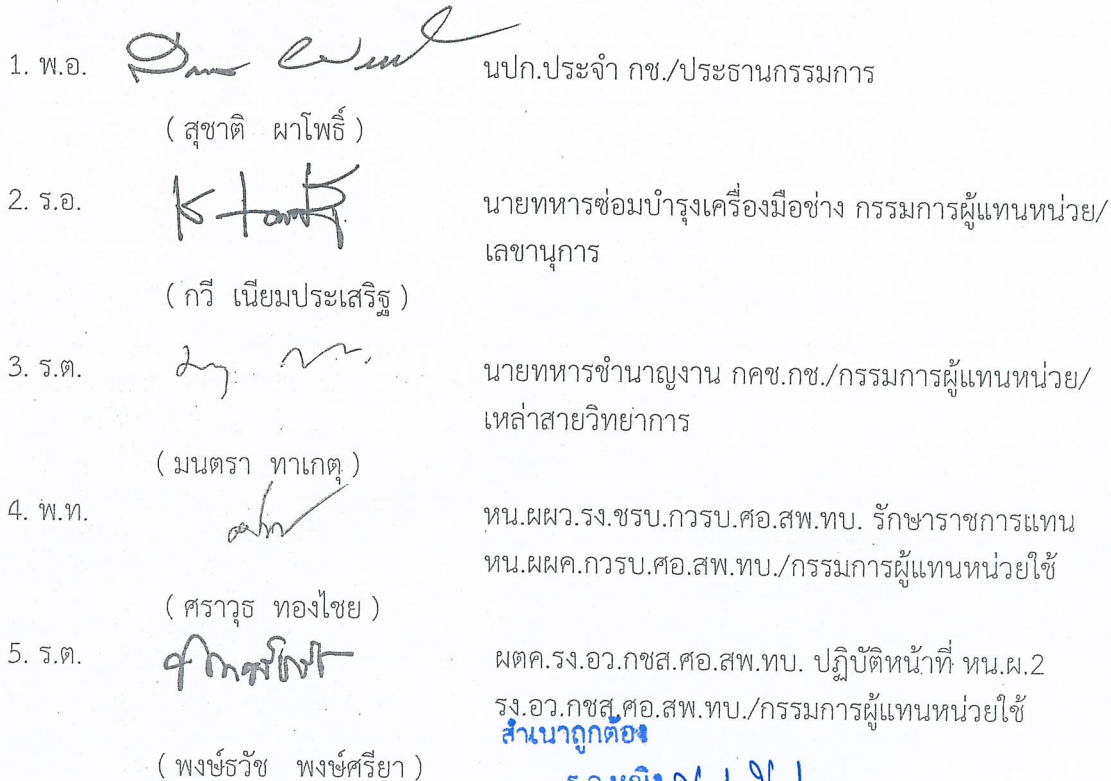 1. พ.อ. นปก.ประจำ กช./ประธานกรรมการ
( สุชาติ ผาโพธิ์ )
2. ร.อ. นายทหารซ่อมบำรุงเครื่องมือช่าง กรรมการผู้แทนหน่วย/
เลขานุการ
( กวี เนียมประเสริฐ )
3. ร.ต. นายทหารชำนาญงาน กคช.กช./กรรมการผู้แทนหน่วย/
เหล่าสายวิทยาการ
( มนตรา ทาเกตุ )
4. พ.ท. หน.ผผว.รง.ชรบ.กวรบ.ศอ.สพ.ทบ. รักษาราชการแทน
หน.ผผค.กวรบ.ศอ.สพ.ทบ./กรรมการผู้แทนหน่วยใช้
( ศราวุธ ทองไชย )
5. ร.ต. ผตค.รง.อว.กชส.ศอ.สพ.ทบ. ปฏิบัติหน้าที่ หน.ผ.2
รง.อว.กชส.ศอ.สพ.ทบ./กรรมการผู้แทนหน่วยใช้
สำเนาถูกต้อง
( พงษ์ธวัช พงษ์ศรียา )